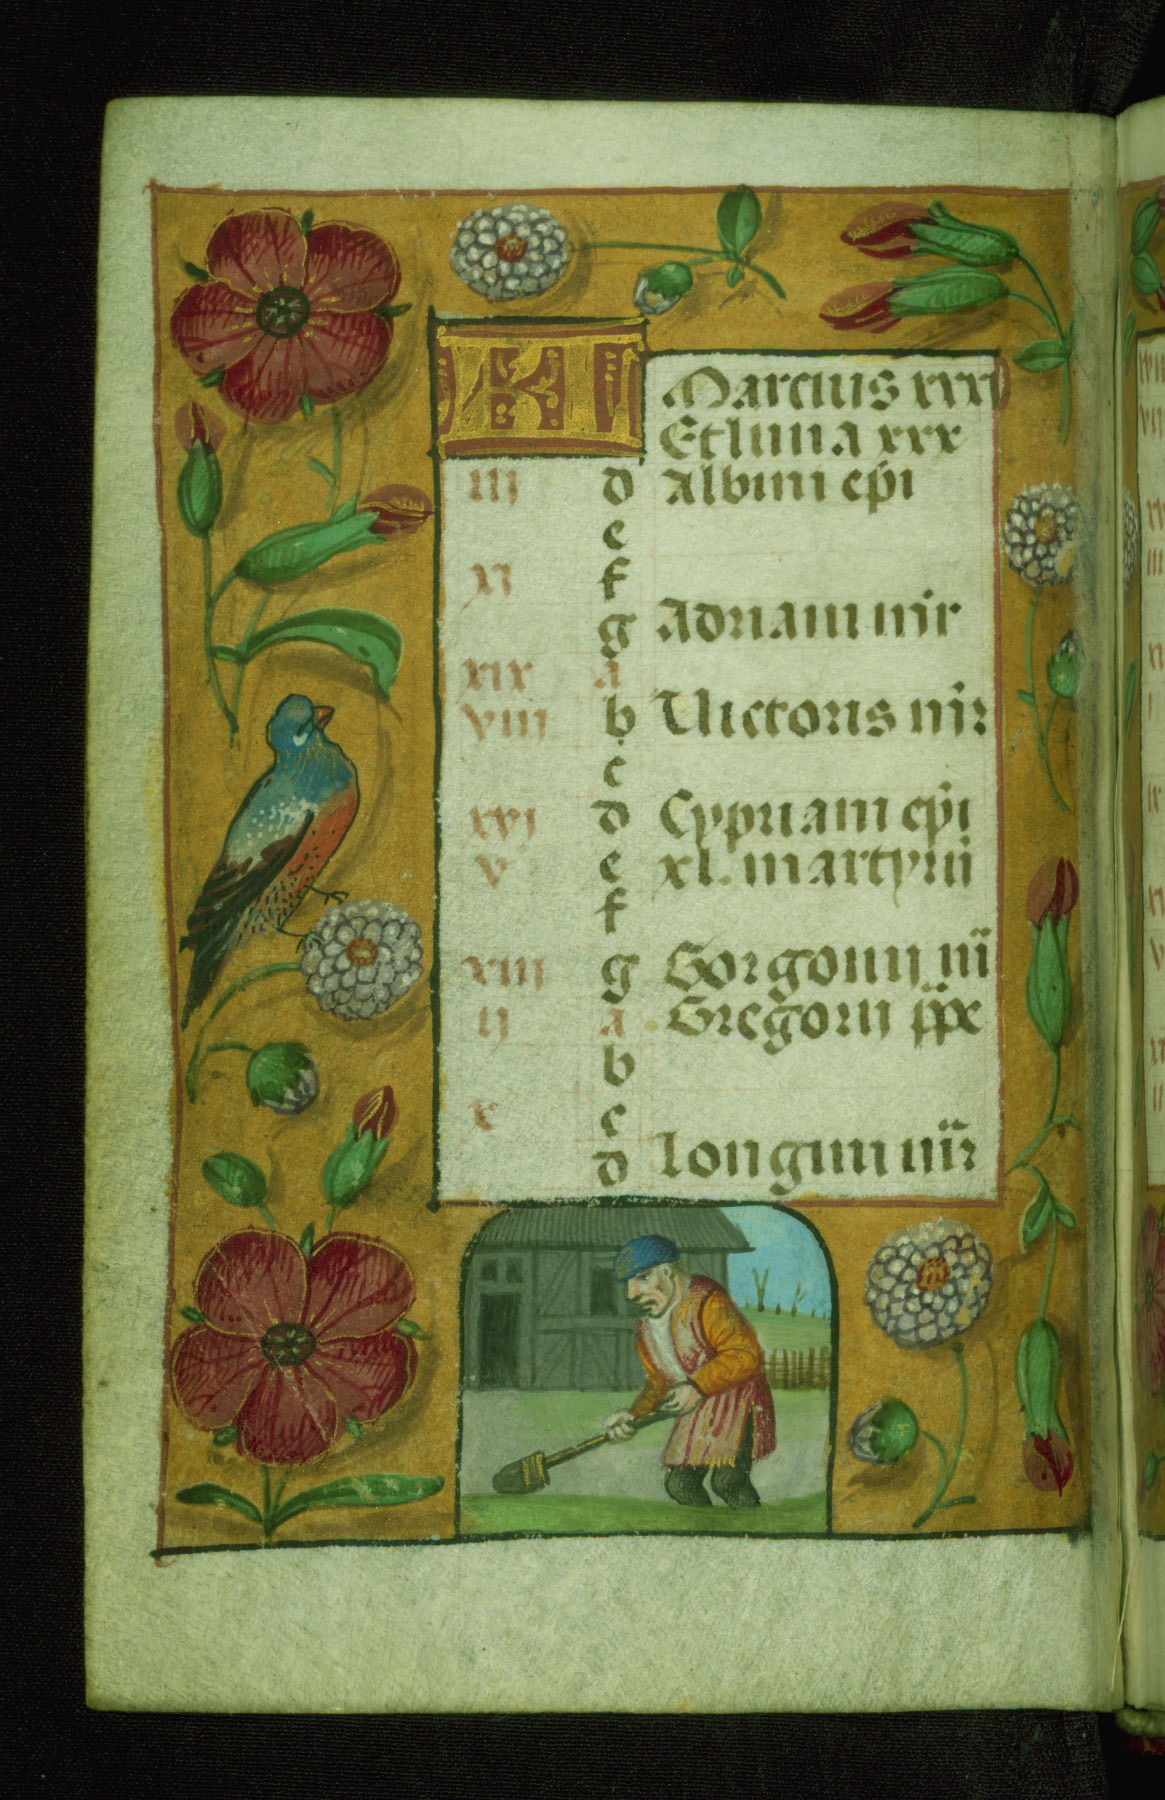 KL Marcius xxxj
Et luna xxx
iij d Albini epi
e
xi f
g Adriani mr
xix a
viii b Victoris mr
c
xvj d Cypriani epi
v e xl. martyru
f
xiij g Gorgonij m
ij a Gregorii ppe
b
x c
d Longini mr